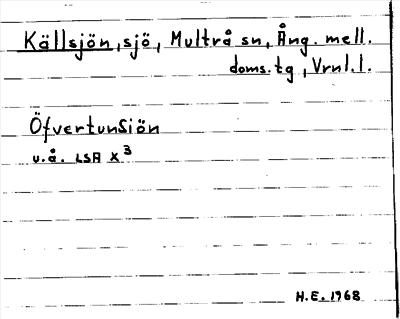 Källsjön, sjö, Multrå sn, Ång. mell.
doms.tg, Vrnl.l.
Öfvertunsiön
u.å. LSA X³
H.E. 1968